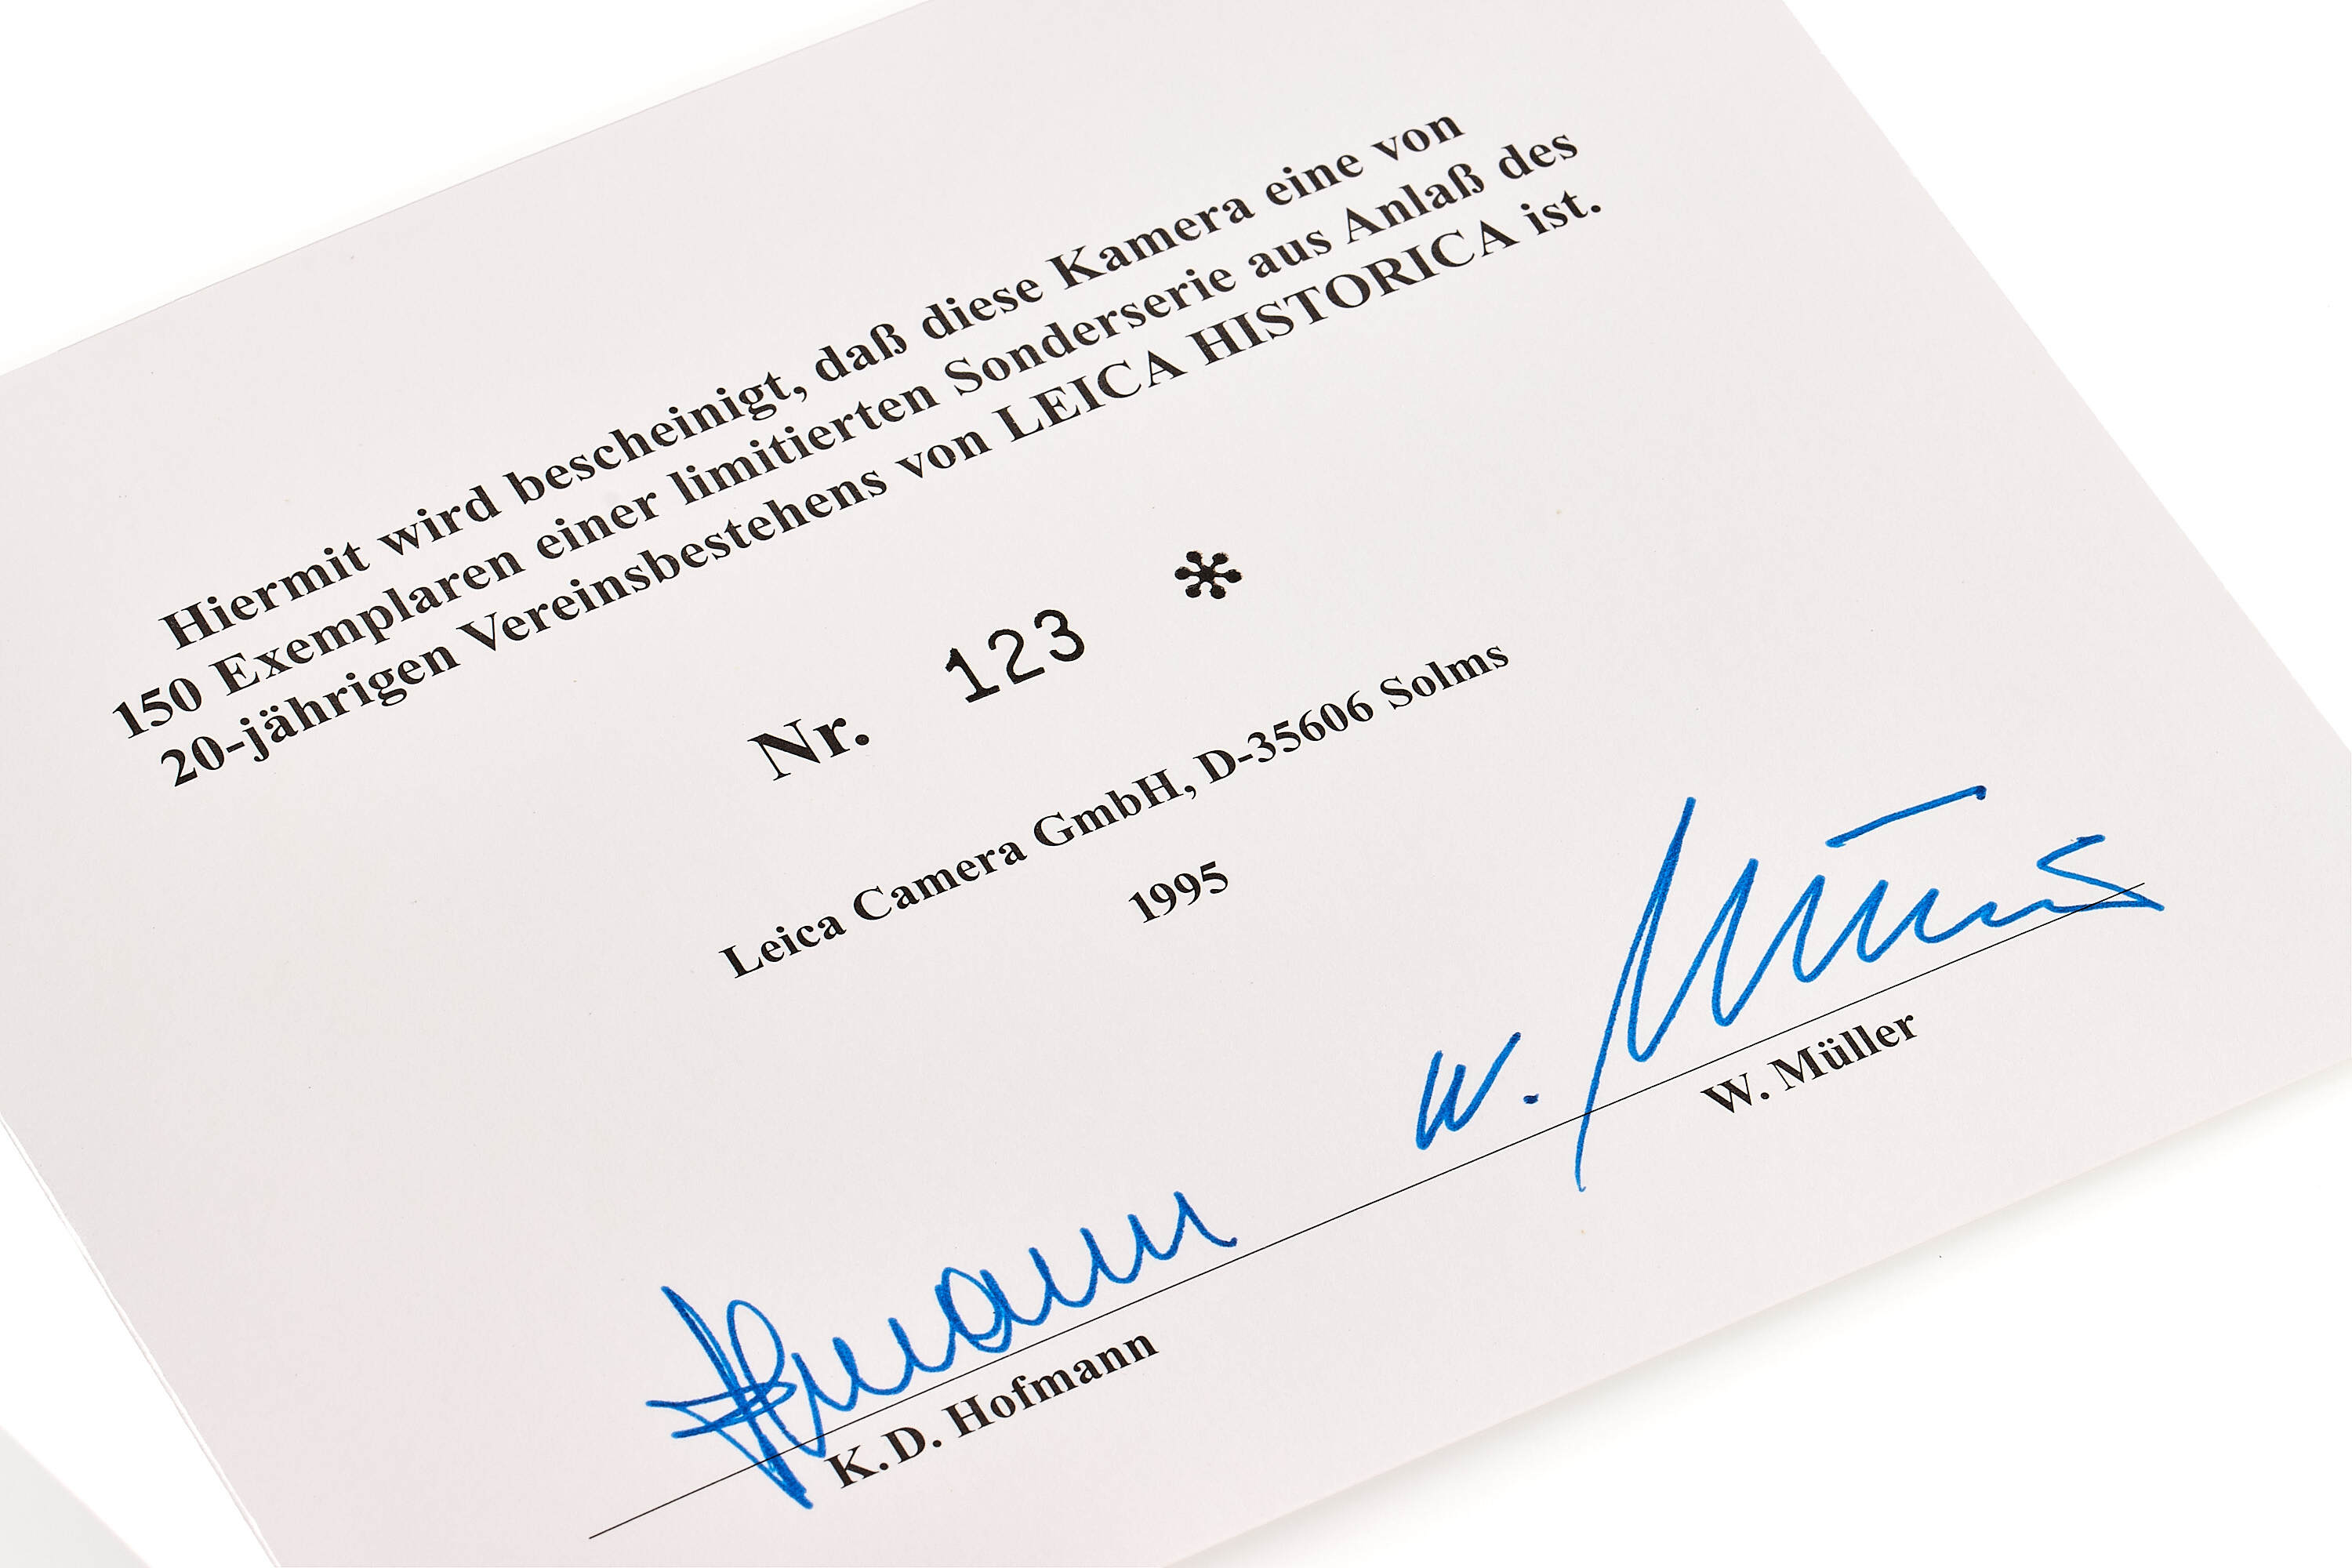 Hiermit wird bescheinigt, daß diese Kamera eine von
150 Exemplaren einer limitierten Sonderserie aus Anlaß des
20-jährigen Vereinsbestehens von LEICA HISTORICA ist.
Nr. 123 *
Leica Camera GmbH, D-35606 Solms
1995
W. Müller
K.D. Hofmann